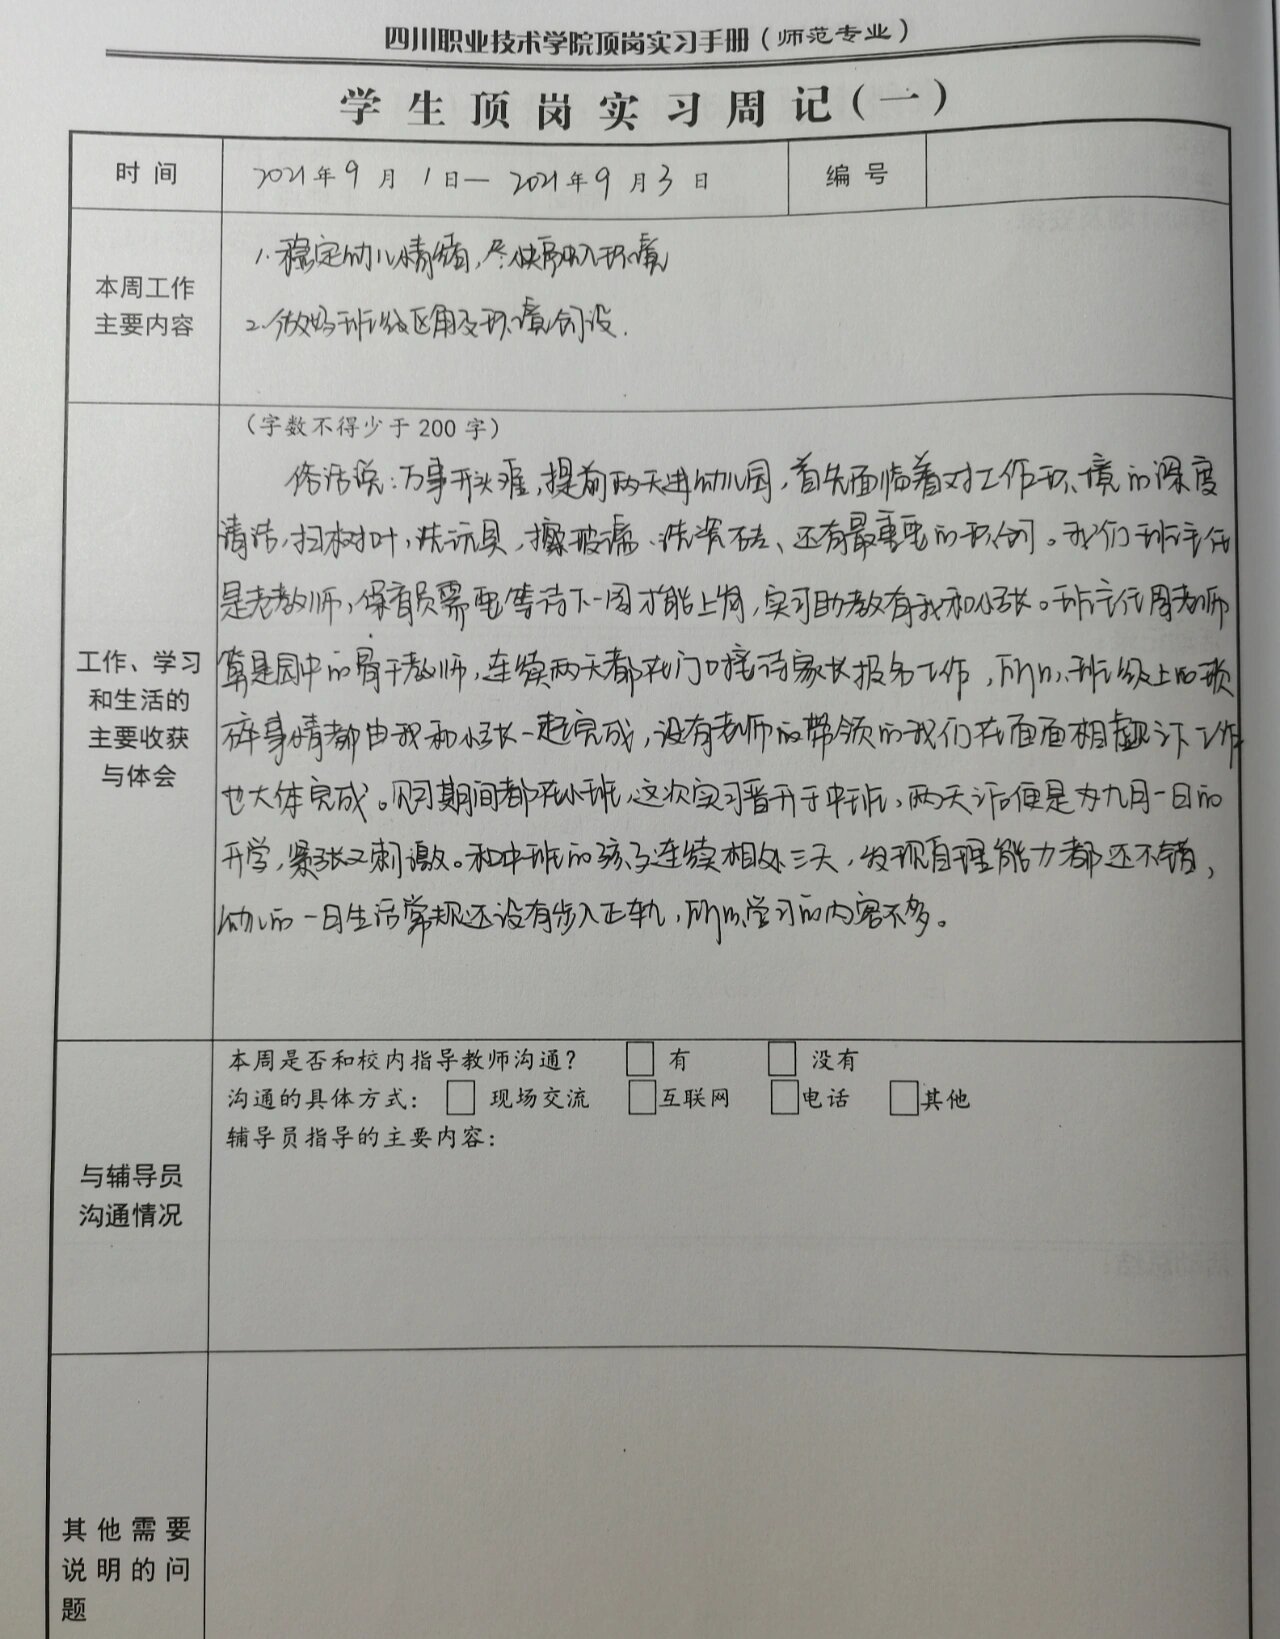 四川职业技术学院顶岗实习手册（师范专业）
学生顶岗实习周记（一）
时间
2021年9月1日—2021年9月3日
编号
本周工作
主要内容
1.稳定幼儿情绪，尽快融入环境
2.做好班级区角及环境创设.
工作、学习
和生活的
主要收获
与体会
（字数不得少于200字）
俗话说：万事开头难，提前两天进幼儿园，首先面临着对工作环境的深度
清洁，扫树叶，洗玩具，擦玻璃、洗瓷砖、还有最重要的环创。我们班主任
是老教师，保育员需要等待下一周才能上岗，实习助教有我和小张。班主任周老师
算是园中的骨干教师，连续两天都在门口接待家长报名工作，所以，班级上的琐
碎事情都由我和小张一起完成，没有老师的带领的我们在面面相觑之下工作
也大体完成。见习期间都在小班，这次实习晋升于中班，两天后便是为九月一日的
开学，紧张又刺激。和中班的孩子连续相处三天，发现自理能力都还不错，
幼儿的一日生活常规还没有步入正轨，所以学习的内容不多。
与辅导员
沟通情况
本周是否和校内指导教师沟通？ □ 有 □ 没有
沟通的具体方式： □ 现场交流 □互联网 □电话 □其他
辅导员指导的主要内容：
其他需要
说明的问
题